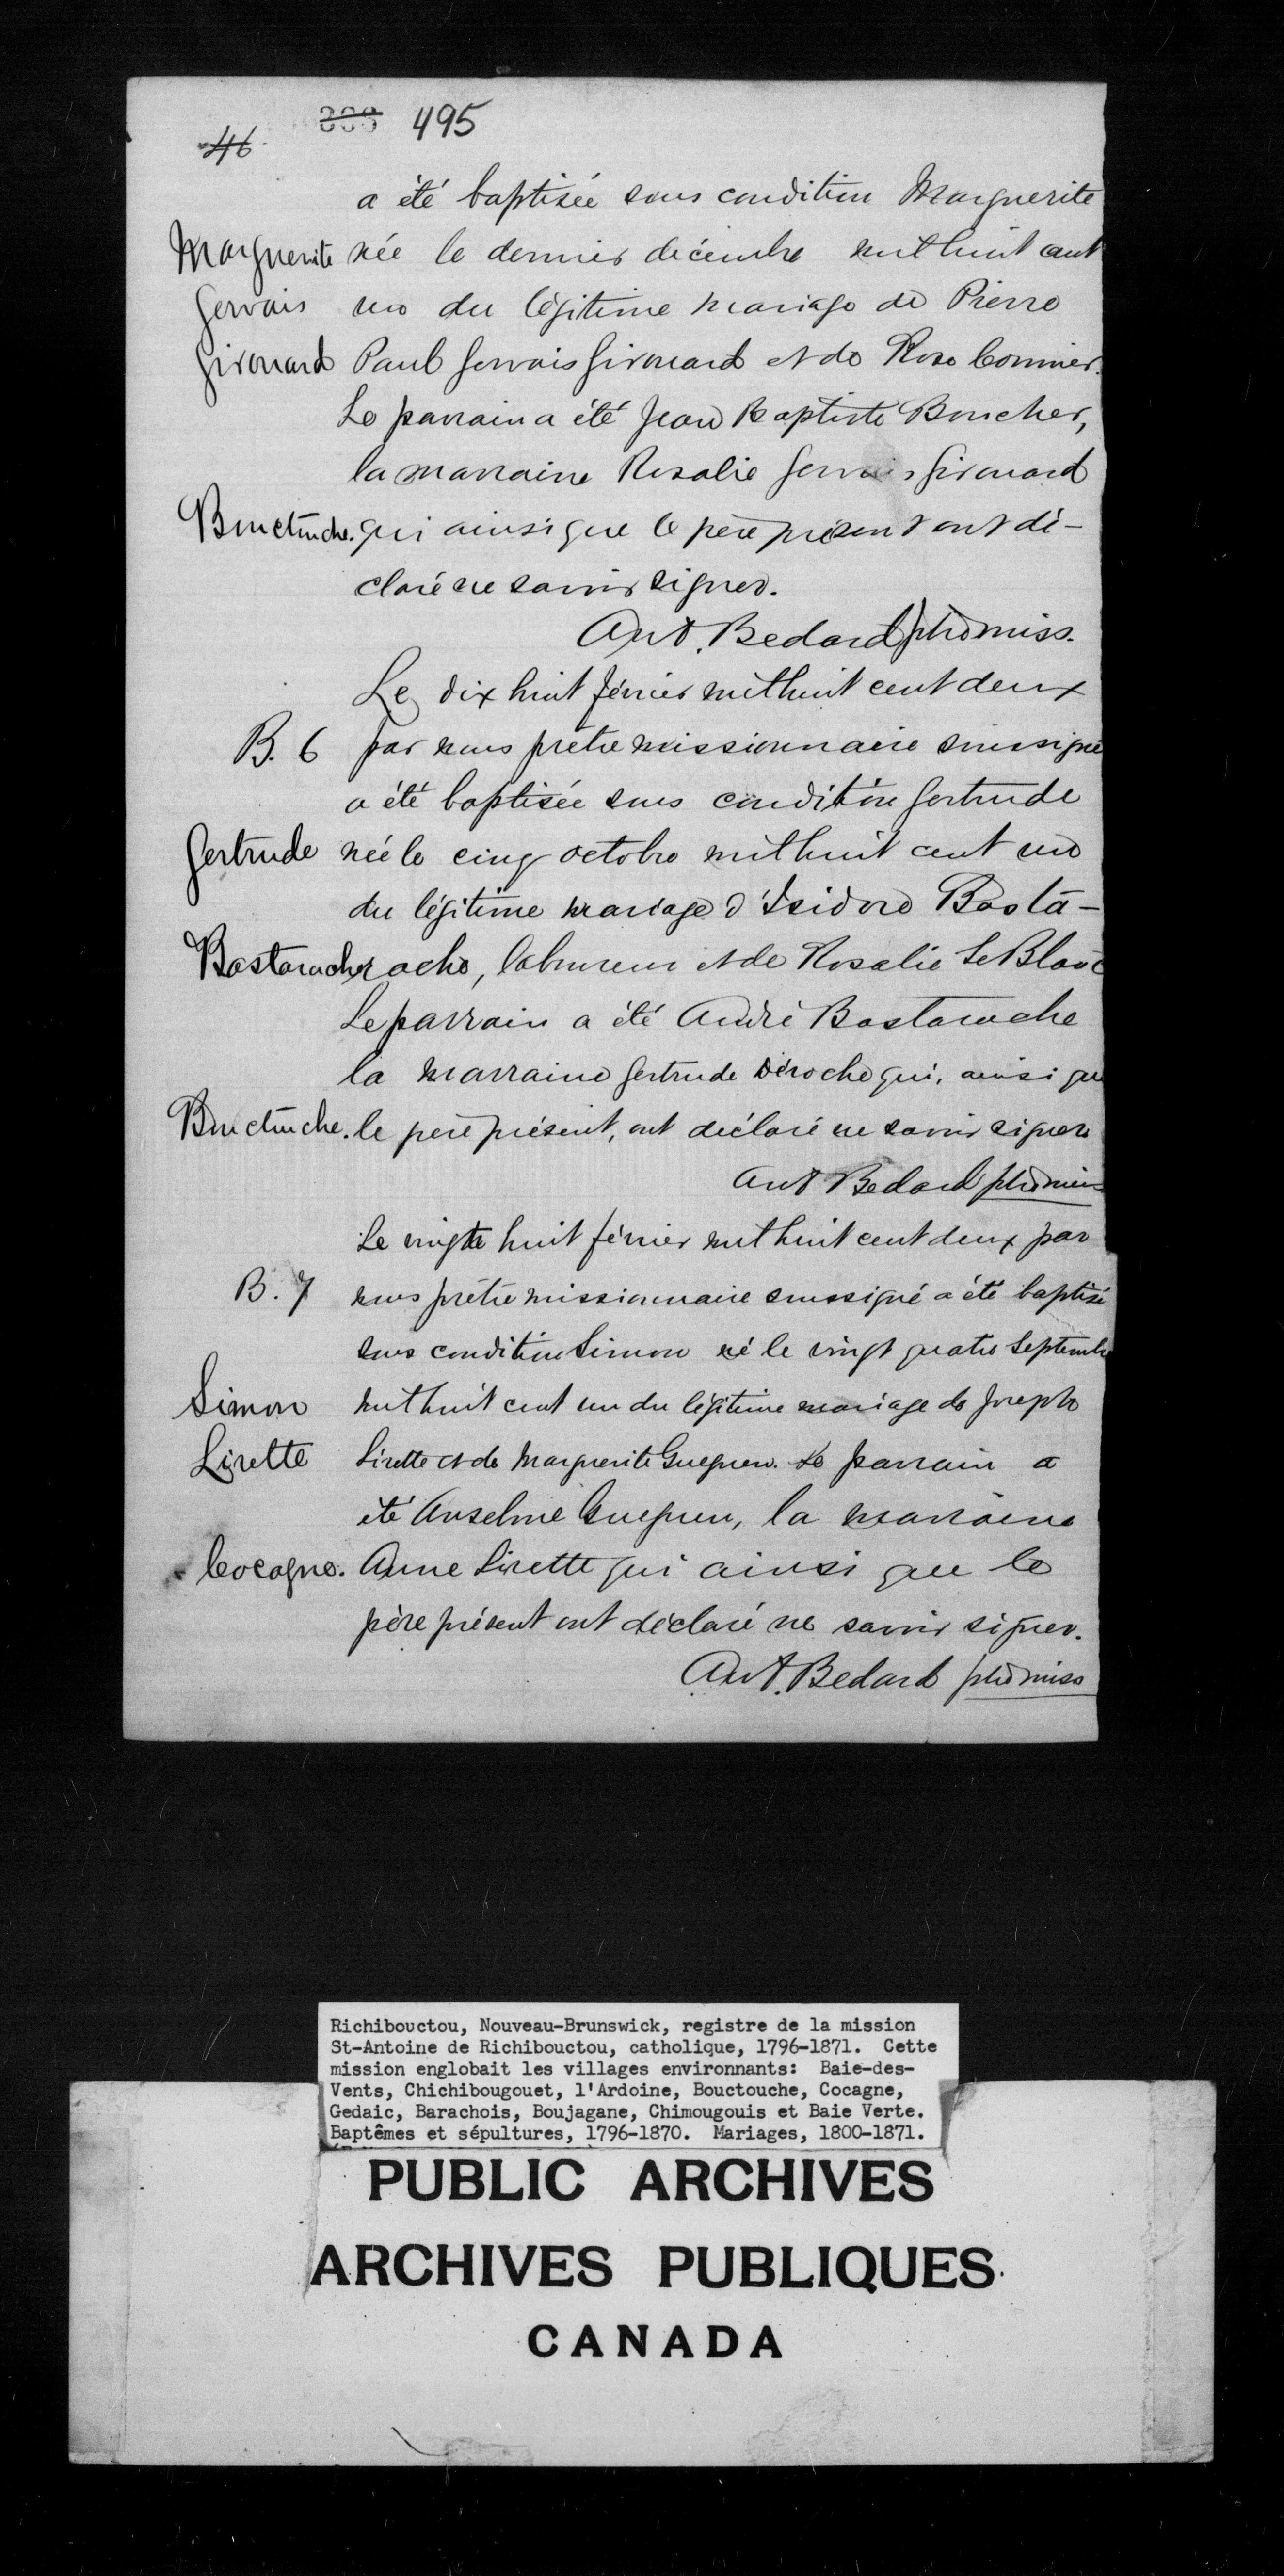 46 333 495
a été baptisée sous condition Marguerite
Marguerite née le dernier décembre mil huit cent
Gervais un du légitime mariage de Pierre
Girouard Paul Gervais Girouard et de Rose Cormier.
Le parrain a été Jean Baptiste Boucher,
la marraine Rosalie Gervais Girouard
Bouctouche. qui ainsi que le père présent ont dé-
claré ne savoir signer.
Ant. Bedard ptre miss.
Le dix huit février mil huit cent deux
B. 6 par nous prêtre missionnaire soussigné
a été baptisée sous condition Gertrude
Gertrude née le cinq octobre mil huit cent un
du légitime mariage d'Isidore Basta-
Bastarache rache, laboureur et de Rosalie LeBlanc
Le parrain a été André Bastarache
la marraine Gertrude Déroche qui, ainsi que
Bouctouche. le père présent, ont déclaré ne savoir signer
Ant Bedard ptre miss
Le vingt huit février mil huit cent deux par
B. 7 nous prêtre missionnaire soussigné a été baptisé
sous condition Simon né le vingt quatre Septembre
Simon mil huit cent un du légitime mariage de Joseph
Lirette Lirette et de Marguerite Gueguen. Le parrain a
été Anselme Gueguen, la marraine
Cocagne. Anne Lirette qui ainsi que le
père présent ont déclaré ne savoir signer.
Ant. Bedard ptre miss
Richibouctou, Nouveau-Brunswick, registre de la mission
St-Antoine de Richibouctou, catholique, 1796-1871. Cette
mission englobait les villages environnants: Baie-des-
Vents, Chichibougouet, l'Ardoine, Bouctouche, Cocagne,
Gedaic, Barachois, Boujagane, Chimougouis et Baie Verte.
Baptêmes et sépultures, 1796-1870. Mariages, 1800-1871.
PUBLIC ARCHIVES
ARCHIVES PUBLIQUES
CANADA